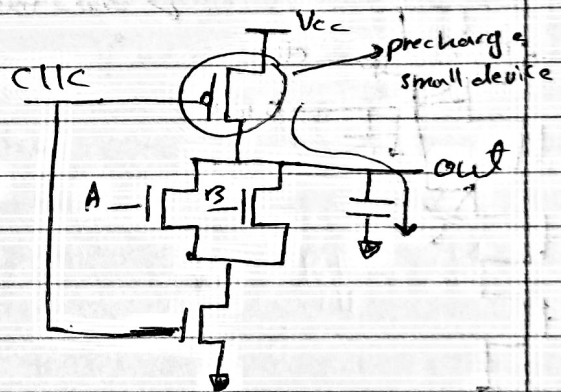 Vcc
precharge
small device
Cllc
out
A
B